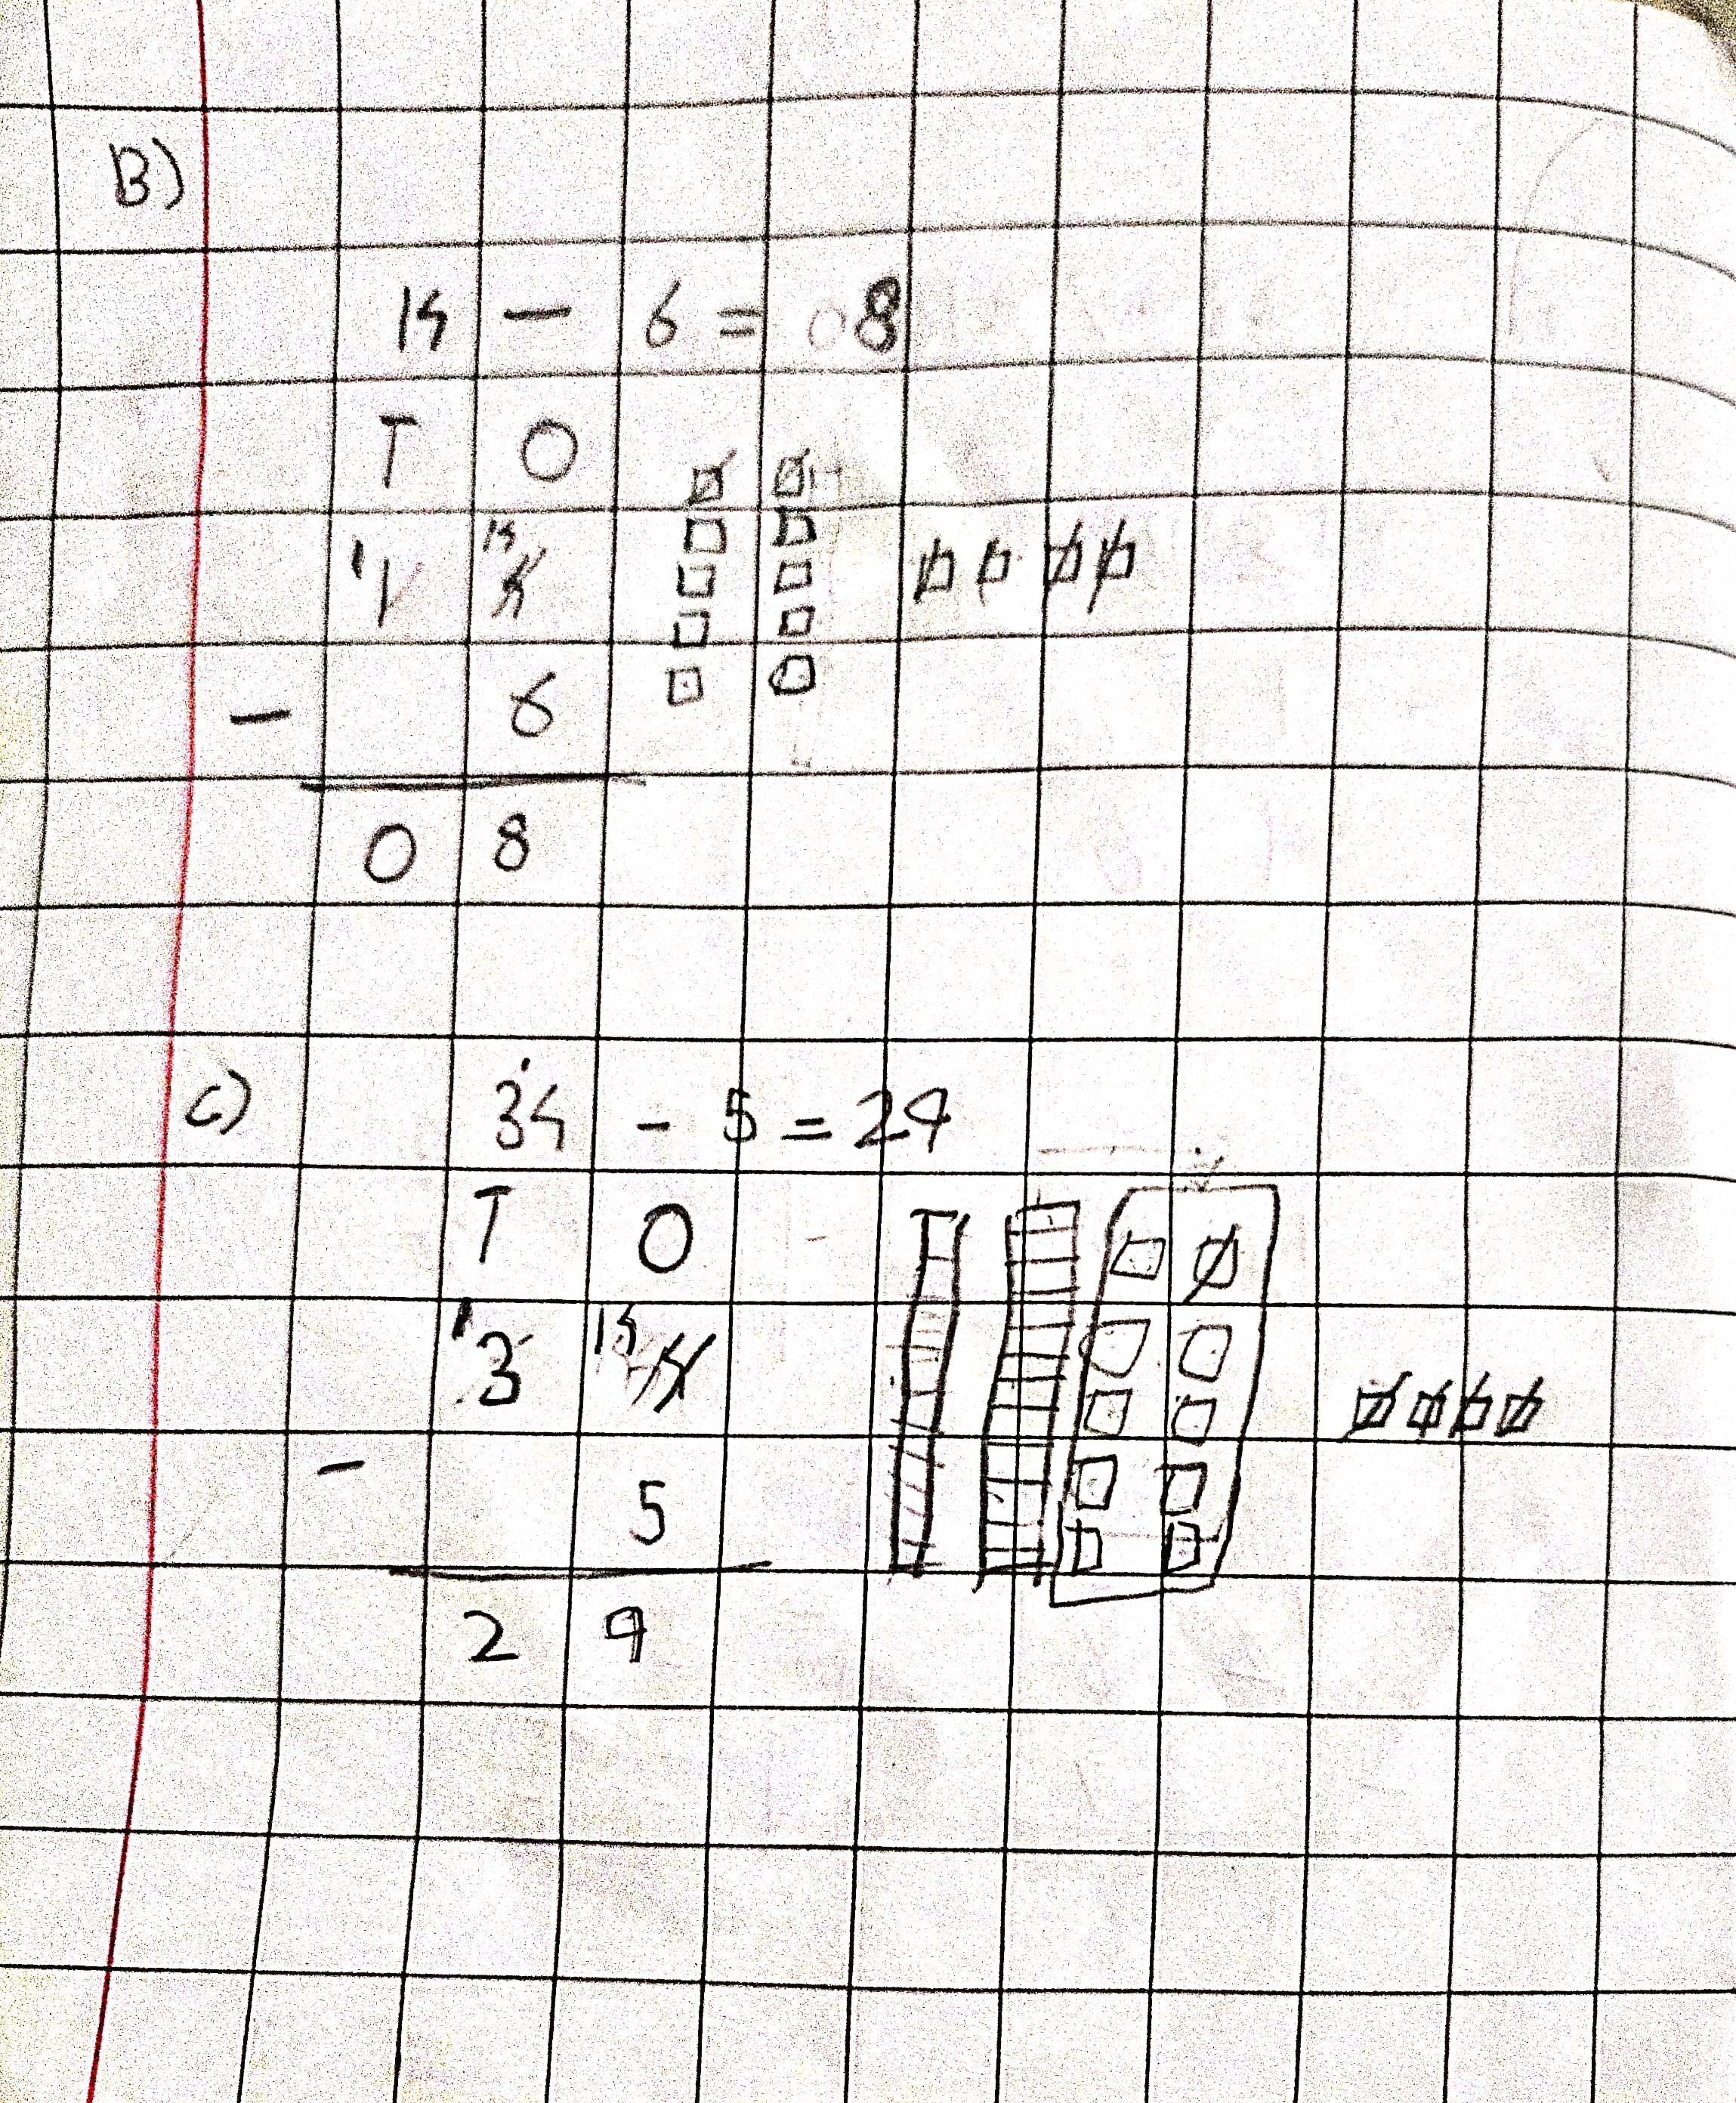 B)
14 - 6 = 08
T O
1 1 14 4
- 6
0 8
C) 34 - 5 = 29
T O
1 3 14 4
- 5
2 9